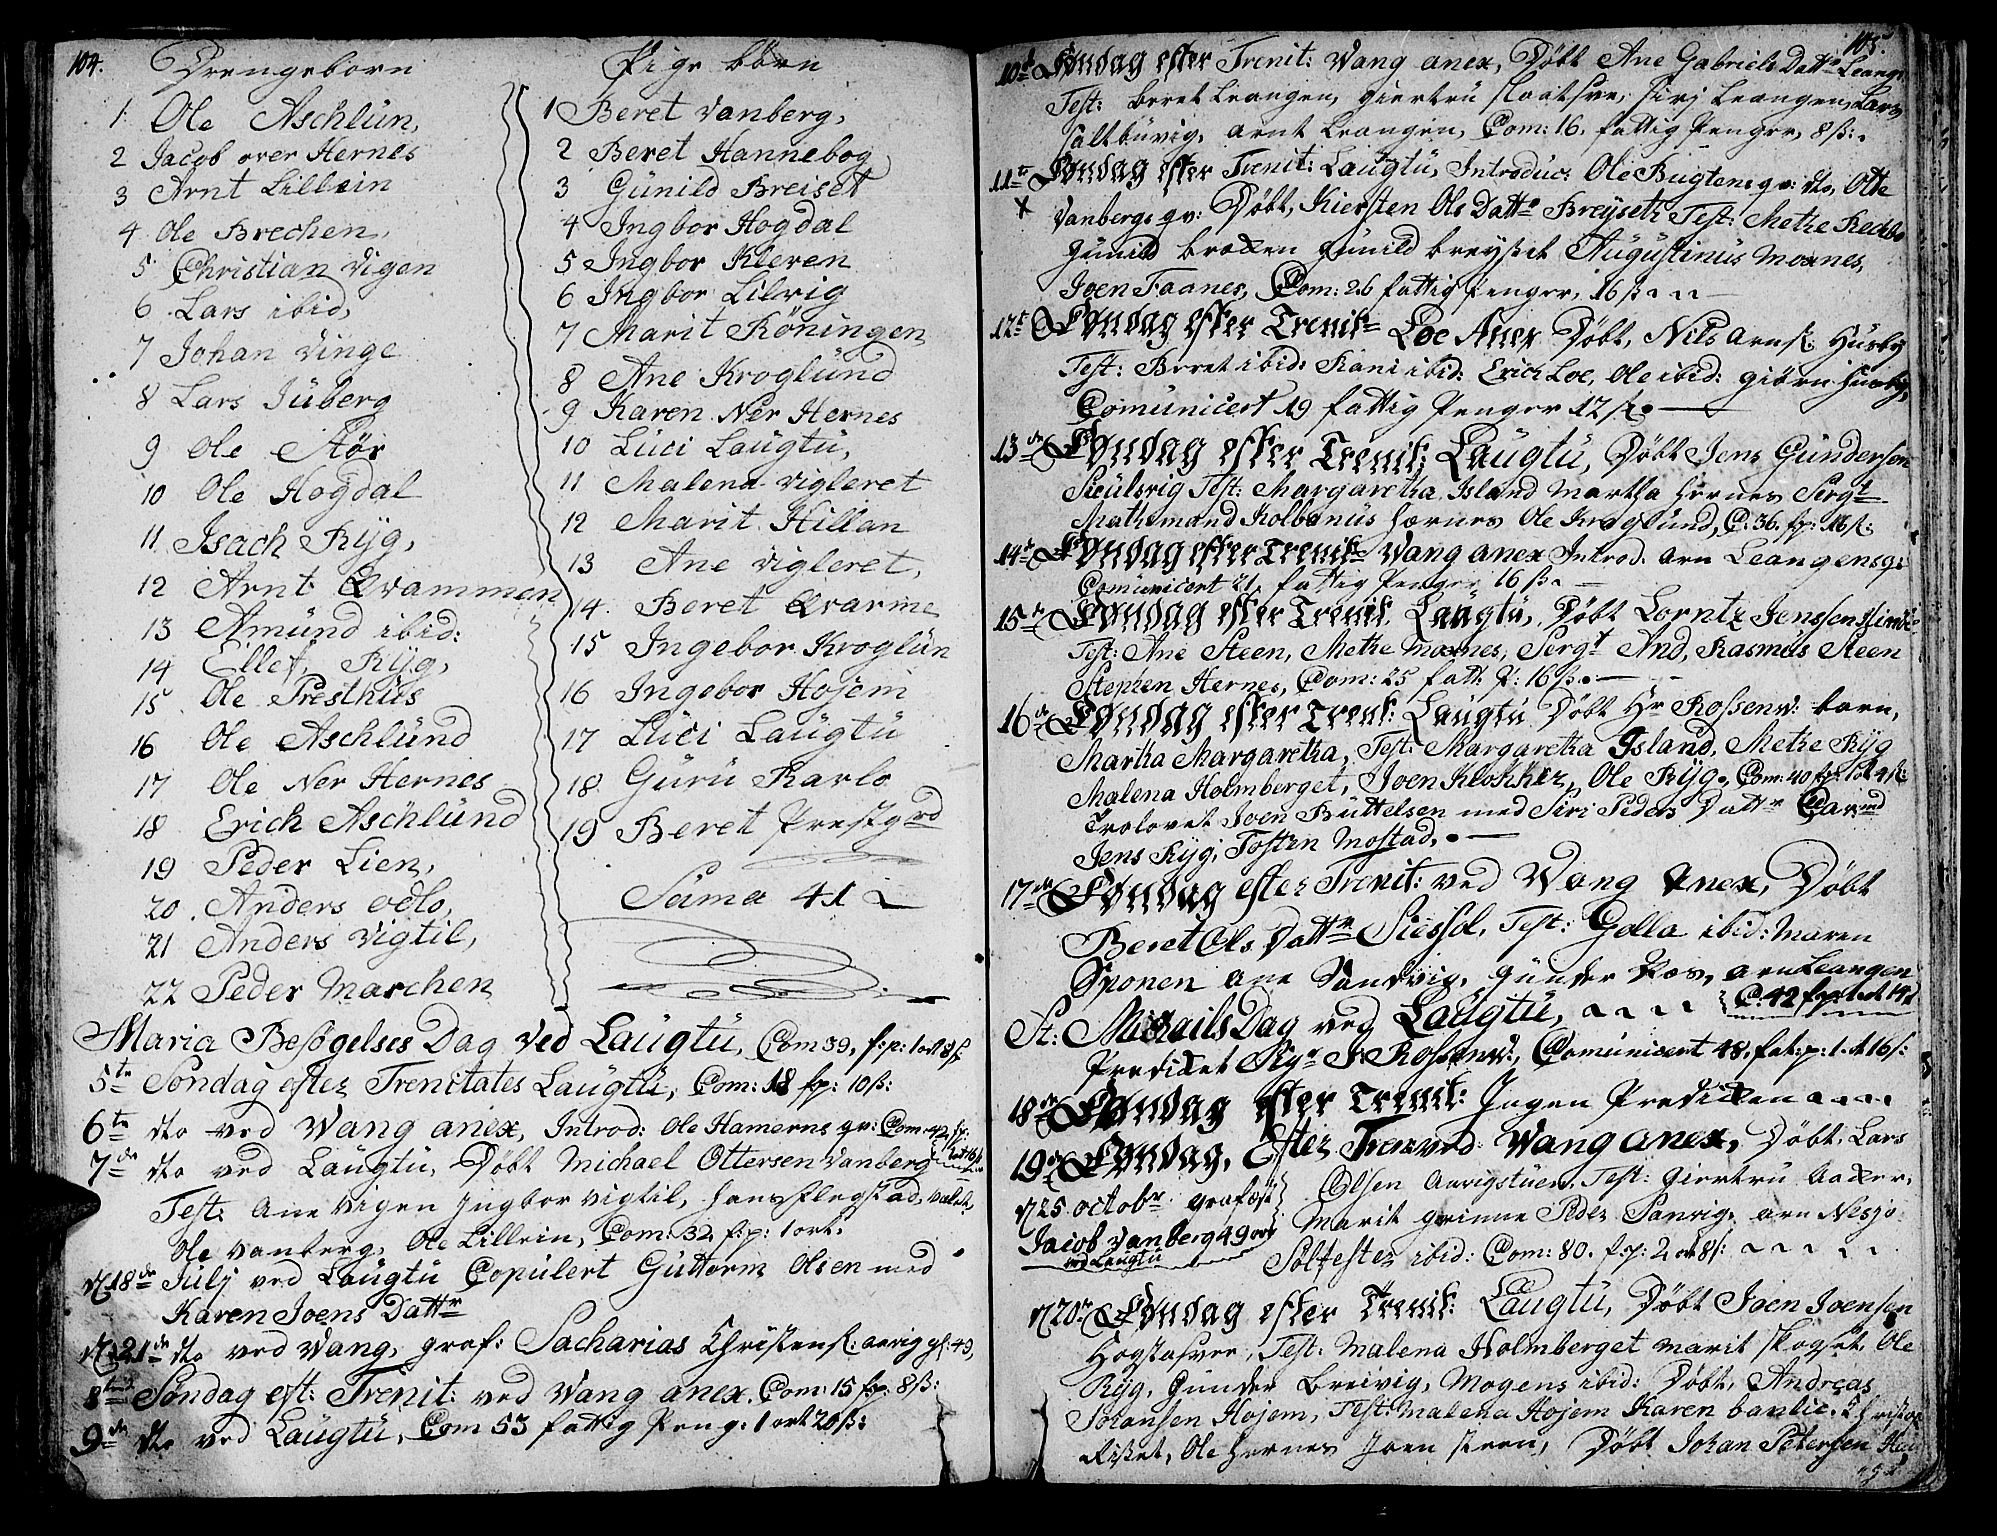 104.
Drengeborn
1. Ole Aschlün,
2 Jacob over Hernes
3 Arnt Lillein
4 Ole Brechen,
5 Christian Vigen
6 Lars ibid,
7 Johan Vinge
8 Lars Jüberg
9 Ole Stör
10 Ole Hogdal
11 Isach Rÿg,
12 Arnt Qvammen
13 Amünd ibid:
14 Ellef, Rÿg,
15 Ole Presthus
16 Ole Aschlünd
17 Ole Ner Hernes
18 Erich Aschlünd
19 Peder Lien,
20. Anders odlo,
21 Anders Vigtil,
22 Peder Marchen
Pige börn
1 Beret Vanberg,
2 Beret Hannebog
3 Günild Breiset
4 Ingbor Hogdal
5 Ingbor Kleven
6 Ingbor Lilvig
7 Marit Röningen
8 Ane Kroglünd
9 Karen Ner Hernes
10 Lüci Laügtü,
11 Malena Vigleret
12 Marit Hillan
13 Ane Vigleret,
14. Beret Qvarme
15 Ingebor Kroglün
16 Ingebor Hojem
17 Lüci Laügtü
18 Gürü Karlo
19 Beret Prestgrd
Süma 41
Maria Besögelses Dag ved Laügtü, Com 39, f:p: 1 ort 8 ß
5te Söndag efter Trenitates Laügtü, Com: 18 fp: 10 ß:
6te dto ved Wang anex, Introd: Ole Hamerns qv: Com: 42, fp:
7de dto ved Laügtü, Döbt Michael Ottersen Vanberg
Test: Ane Vigen Ingbor Vigtil, Hans Flegstad,
Ole Vanberg, Ole Lillein, Com: 32, f:p: 1 ort.
d 18de Julj ved Laügtü Copulert Guttorm Olsen med
Karen Joens Dattr
d 21de dto ved Wang, graf: Sacharias Christens: aarig gl: 49,
8tende Söndag eft: Trenit: ved Wang anex. Com: 15 fp: 8 ß:
9de dto ved Laügtü, Com 53 fattig Peng: 1 ort 20 ß:
105.
10d Söndag efter Trenit: Wang anex, Döbt Ane Gabriels Dattr Leang
Test: Beret Leangen, Giertrü Slaatsve, Sirj Leangen, Lars
Saltbüvig, Arnt Leangen, Com: 16. fattig Penger, 8 ß:
11te Söndag efter Trenit: Laügtü, Introduc: Ole Bugtens qv: dto, Otte
Vanbergs qv: Döbt, Kiersten Ols Dattr Breÿset, Test: Metre
Günild Braxen Günild Breÿset Augustinus Moxnes,
Joen Faanes, Com: 26 fattig Penger, 16 ß
12te Söndag efter Trenit= Loe Anex Döbt, Nils Arns: Husby
Test: Beret ibid: Rani ibid: Erich Loe, Ole ibid: Giörn Huusby,
Comünicert 19 fattig Penger 12 ß.
13de Söndag efter Trenit: Laügtü, Döbt Jens Gündersen
Test: Margaretha Island Martha Hernes Sergt
Mathemand Kolbanus Hærnes Ole Kroglünd, C: 36. fp: 16 ß:
14de Söndag efter Trenit= Wang anex Introd. Arn Leangens qv:
Comünicert 21, fattig Penger 16 ß.
15de Söndag efter Trenit. Laügtü, Döbt Lorntz Jenssen
Test: Ane Steen, Metre Moxnes, Sergt And, Rasmüs Steen
Stephen Hernes, Com: 25 fatt: P: 16 ß.
16de Söndag efter Trenit: Laügtü Döbt Hr Rossenv: barn,
Martha Margaretha, Test: Margaretha Island, Metre Rÿg
Malena Holmberget, Joen Klokker, Ole Rÿg, Com: 40 fp: 1 ort 4 ß:
Trolovet Joen Büttelsen med Siri Peders Dattr Cav:
Jens Rÿg, Tosten Mostad.
17de Söndag efter Trenit: ved Wang Anex, Döbt
Beret Ols Dattr Siessol, Test: Golla ibid: Maren
Sponen Ane Sandvig, Günder Næs, Arn Leangen
C: 42 fp: 1 ort 14
St: Michails Dag ved Laügtü,
Prediket Hr Rosenv:, Comünicert 48, fat: p: 1 ort 16 ß:
18de Söndag efter Trenit: Ingen Prediken
19de Söndag, Efter Tren: ved: Wang anex, Döbt, Lars
Olsen Aarigstüen, Test: Giertrü Aaker,
Marit Grinne Peder Sanvig, Arn Nesjo
Solfester ibid: Com: 80. f:p: 2 ort 8 ß:
d 25 octobr grafæst
Jacob Vanberg 49 aar
ved Laugtü
d 20de Söndag efter Trenit: Laügtü, Döbt Joen Joensen
Hogstasver, Test: Malena Holmberget Marit Skogset, Ole
Rÿg, Günder Breivig, Mogens ibid: Döbt, Andreas
Johansen Hojem, Test: Malena Hojem Karen Banlie,
Risset, Ole Hernes Joen Steen, Döbt Johan Petersen